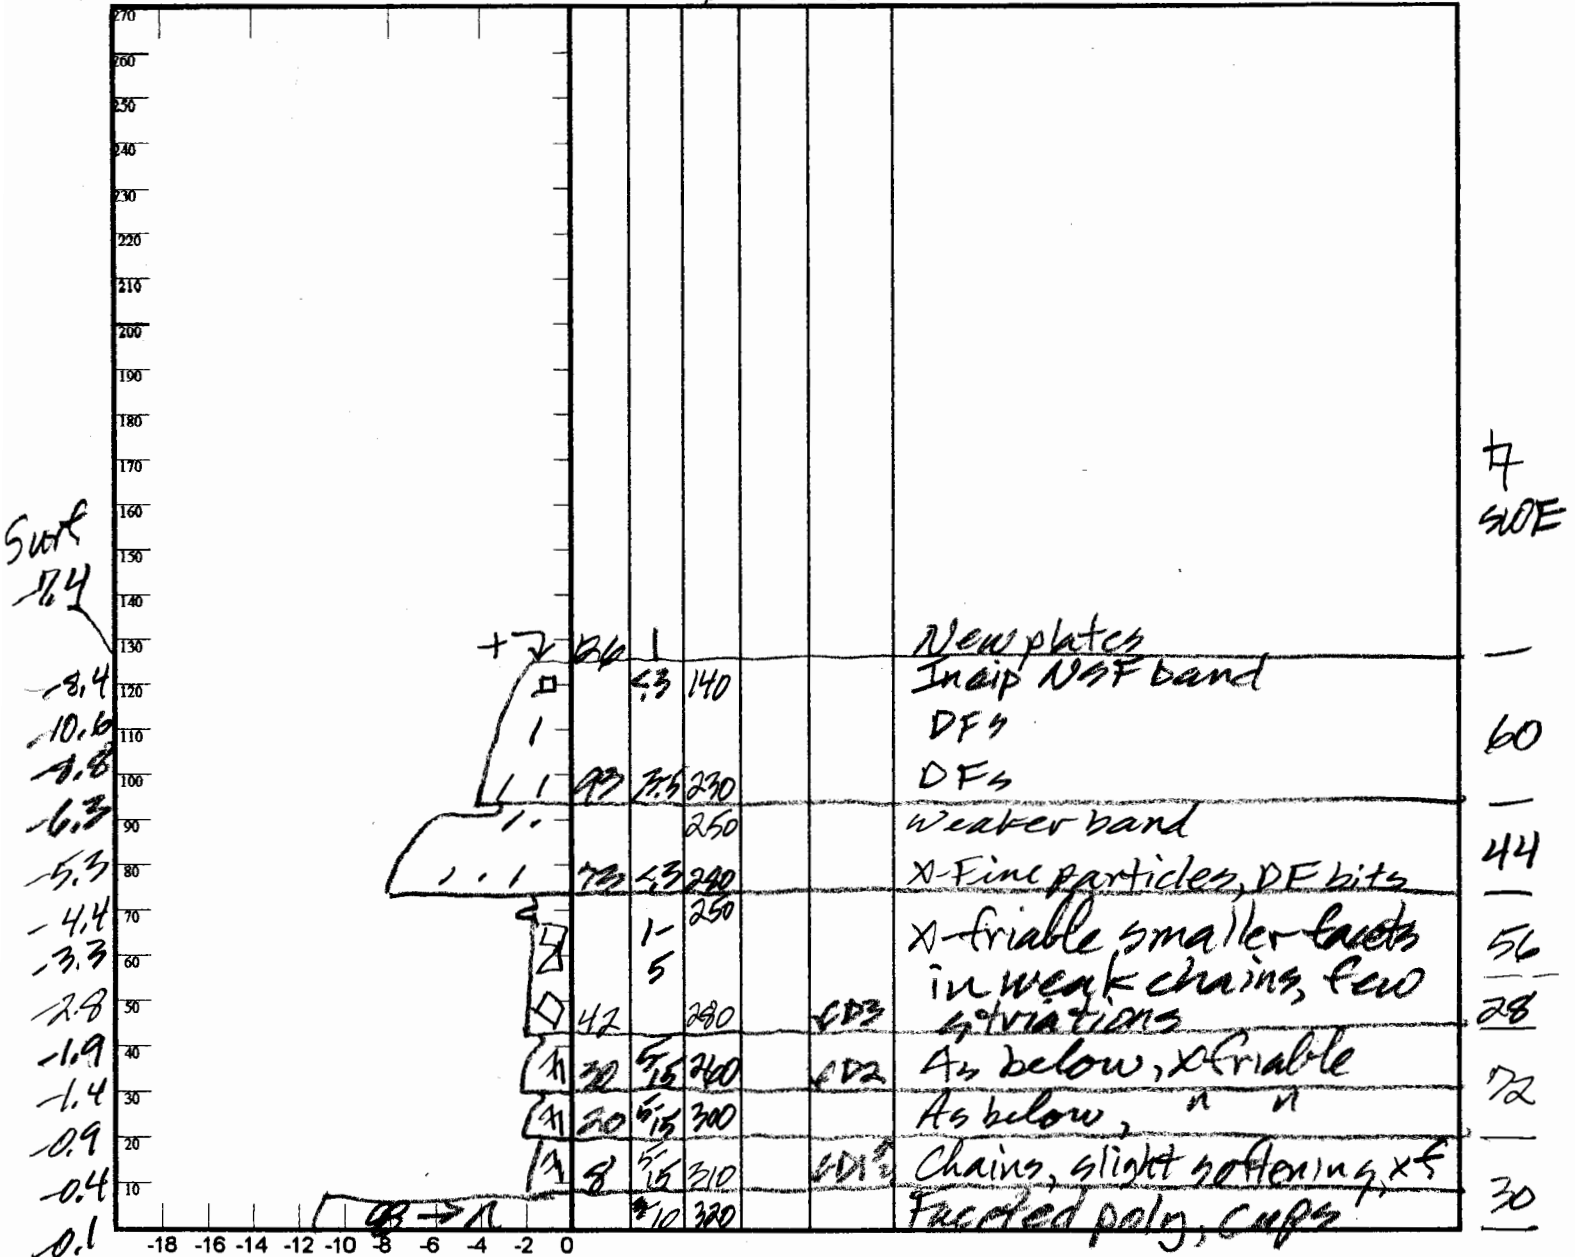 270
260
250
240
230
220
210
200
190
180
170
160
150
140
130
120
110
100
90
80
70
60
50
40
30
20
10
Surf
-7.4
-8.4
-10.6
-8.8
-6.3
-5.3
-4.4
-3.3
-2.8
-1.9
-1.4
-0.9
-0.4
-0.1
SWE
+ 126 1 New plates
<.3 140 Incip NSF band
DFs 60
93 230 DFs
250 Weaker band
44
73 <.3 280 X-Fine particles, DF bits
250
1- X-friable smaller facets 56
5 in weak chains, few
42 280 CD3 striations 28
30 5-15 260 CD2 As below, x friable
72
20 5-15 300 As below, " "
8 5-15 310 CD1 Chains, slight softening, xf
320 Faceted poly, cups 30
-18 -16 -14 -12 -10 -8 -6 -4 -2 0